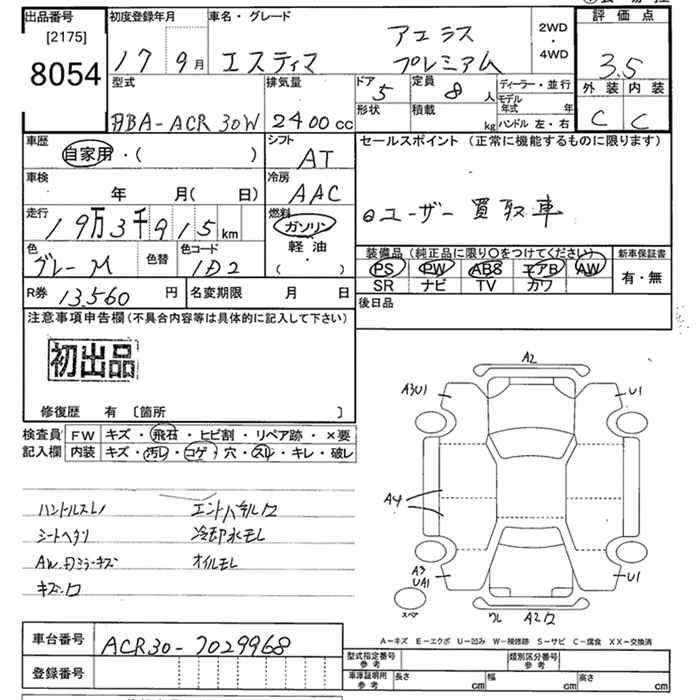 出品番号 初度登録年月 車名・グレード 評価点
[2175] アエラス 2WD
8054 17 9月 エスティマ プレミアム ・ 3.5
4WD
型式 排気量 ドア 定員 ディーラー・並行 外装 内装
5 8人 モデル年式 年
DBA-ACR30W 2400cc 形状 積載 kg ハンドル 左・右 C C
車歴 自家用・( ) シフト AT セールスポイント (正常に機能するものに限ります)
車検 年 月( 日) 冷房 AAC
走行 19万3千915km 燃料 ガソリン ユーザー買取車
軽油
色 グレーM 色替 色コード 1D2 ( ・ ) 装備品(純正品に限り〇をつけてください) 新車保証書
PS PW ABS エアB AW 有・無
SR ナビ TV カワ
R券 13,560円 名変期限 月 日 後日品
注意事項申告欄(不具合内容等は具体的に記入して下さい)
初出品
修復歴 有 〔箇所 〕
検査員 FW キズ・飛石・ヒビ割・リペア跡・×要
記入欄 内装 キズ・汚レ・コゲ・穴・スレ・キレ・破レ
A2
A3U1 U1
ハンドルスレ エンドパネルワ
A4
シートヘタリ 冷却水モレ
AW、Dミラーキズ オイルモレ
キズ、ワ
A3
UA1 U1
スペア ワレ A2ワ
A-キズ E-エクボ U-凹み W-補修跡 S-サビ C-腐食 XX-交換済
車台番号 ACR30-7029968
型式指定番号 参考 類別区分番号 参考
登録番号 車庫証明用 参考 長さ cm 幅 cm 高さ cm